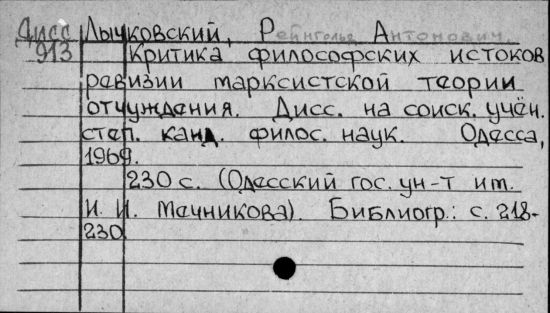 Дисс Лычковский, Рейнгольд Антонович.
913 Критика философских истоков
ревизии марксистской теории
отчуждения. Дисс. на соиск. учён.
степ. канд. филос. наук. Одесса,
1969.
230 с. (Одесский гос. ун-т им.
И. И. Мечникова). Библиогр.: с. 218-
230